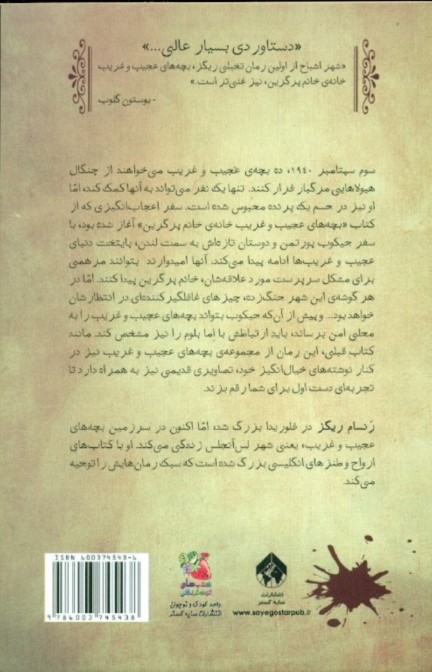 «دستاوردی بسیار عالی...»
«شهر اشباح از اولین رمان تخیلی ریگز، بچه‌های عجیب و غریب
خانه‌ی خانم پرگرین، نیز غنی‌تر است.»
- بوستون گلوب
سوم سپتامبر ۱۹۴۰، ده بچه‌ی عجیب و غریب می‌خواهند از چنگال
هیولاهایی مرگبار فرار کنند. تنها یک نفر می‌تواند به آنها کمک کند، امّا
او نیز در جسم یک پرنده محبوس شده است. سفر اعجاب‌انگیزی که از
کتاب «بچه‌های عجیب و غریب خانه‌ی خانم پرگرین» آغاز شده بود، با
سفر جیکوب پورتمن و دوستان تازه‌اش به سمت لندن، پایتخت دنیای
عجیب و غریب‌ها ادامه پیدا می‌کند. آنها امیدوارند بتوانند مرهمی
برای مشکل سرپرست مورد علاقه‌شان، خانم پرگرین پیدا کنند. امّا در
هر گوشه‌ی این شهر جنگ‌زده، چیزهای غافلگیرکننده‌ای در انتظارشان
خواهد بود... و پیش از آن‌که جیکوب بتواند بچه‌های عجیب و غریب را به
محلی امن برساند، باید ارتباطش با اما بلوم را نیز مشخص کند. مانند
کتاب قبلی، این رمان از مجموعه‌ی بچه‌های عجیب و غریب نیز در
کنار نوشته‌های خیال‌انگیز خود، تصاویری قدیمی نیز به همراه دارد تا
تجربه‌ای دست اول برای شما رقم بزند.
رنسام ریگز در فلوریدا بزرگ شد، امّا اکنون در سرزمین بچه‌های
عجیب و غریب، یعنی شهر لس‌آنجلس زندگی می‌کند. او با کتاب‌های
ارواح و طنزهای انگلیسی بزرگ شده است که سبک رمان‌هایش را توجیه
می‌کند.
ISBN 600374543-6
9 786003 745438
واحد کودک و نوجوان
انتشارات سایه گستر
انتشارات
سایه گستر
www.sayegostarpub.ir